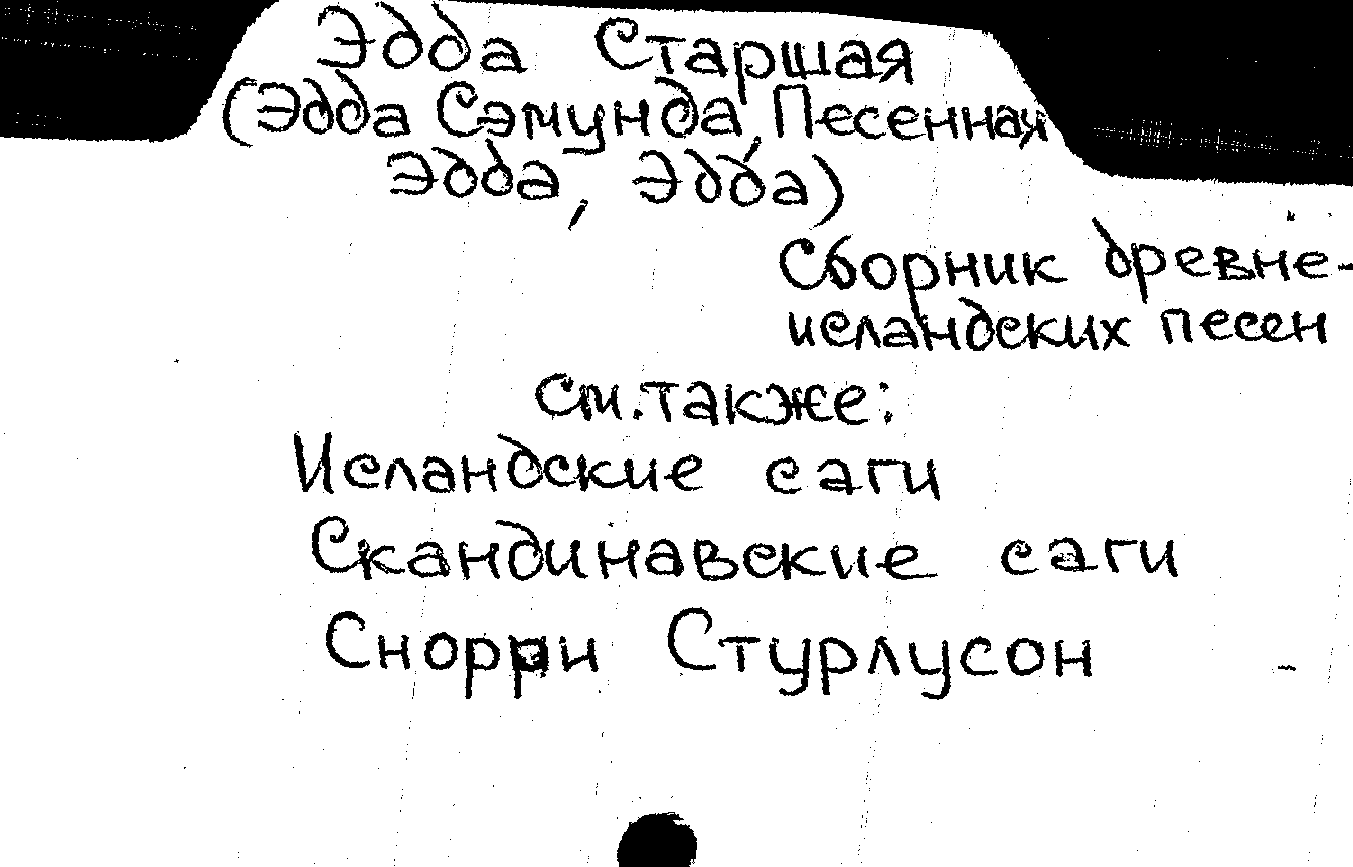 Эдда Старшая
(Эдда Сэмунда, Песенная
Эдда, Эдда)
Сборник древне-
исландских песен
См. также:
Исландские саги
Скандинавские саги
Снорри Стурлусон